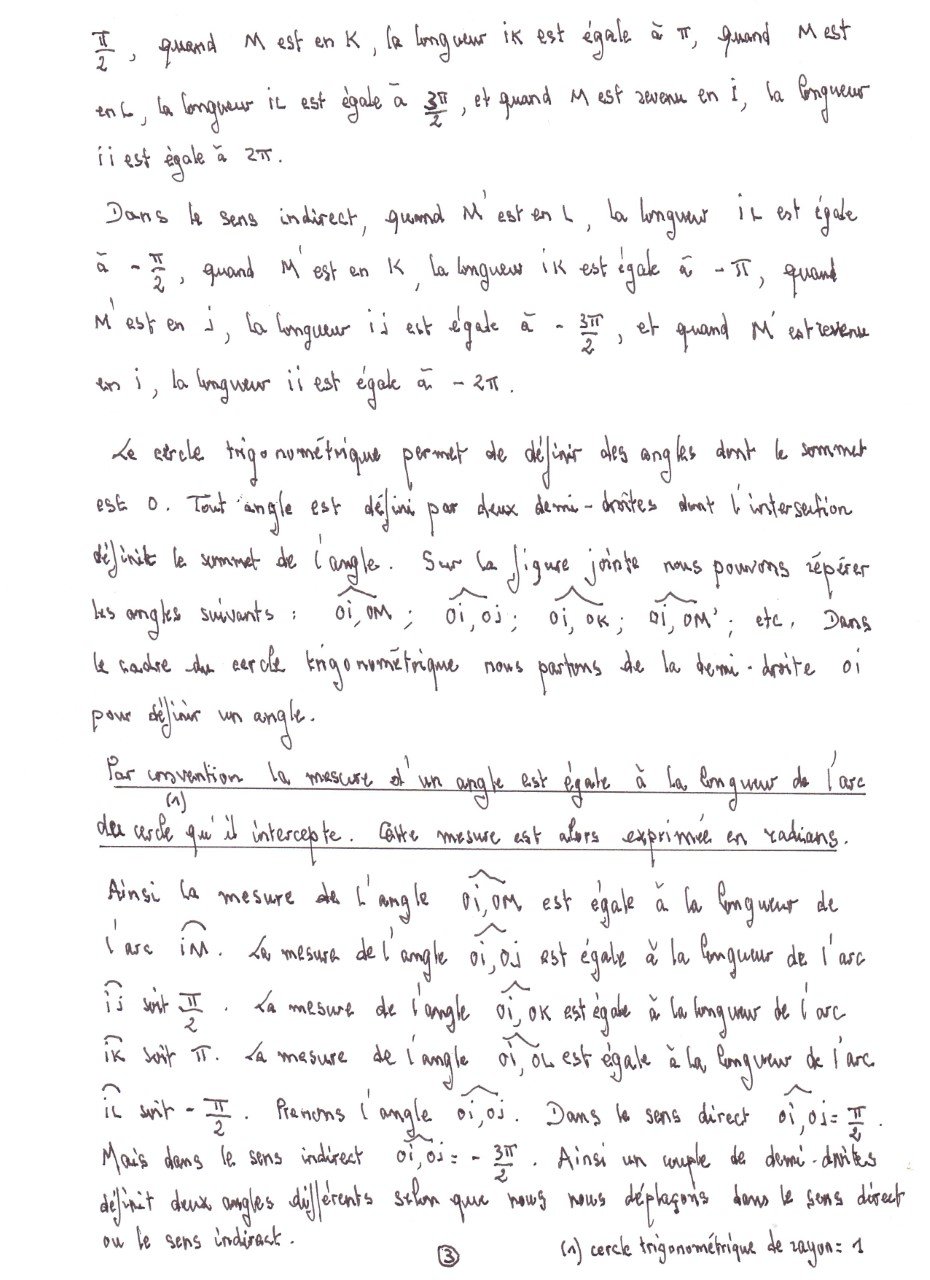 π/2, quand M est en K, la longueur iK est égale à π, quand M est
en L, la longueur iL est égale à 3π/2, et quand M est revenu en i, la longueur
ii est égale à 2π.
Dans le sens indirect, quand M' est en L, la longueur iL est égale
à - π/2, quand M' est en K, la longueur iK est égale à - π, quand
M' est en j, la longueur ij est égale à - 3π/2, et quand M' est revenu
en i, la longueur ii est égale à - 2π.
Le cercle trigonométrique permet de définir des angles dont le sommet
est O. Tout angle est défini par deux demi-droites dont l'intersection
définit le sommet de l'angle. Sur la figure jointe nous pouvons répérer
les angles suivants : Oi, OM ; Oi, Oj ; Oi, OK ; Oi, OM' ; etc. Dans
le cadre du cercle trigonométrique nous partons de la demi-droite Oi
pour définir un angle.
Par convention la mesure d'un angle est égale à la longueur de l'arc
du cercle (1) qu'il intercepte. Cette mesure est alors exprimée en radians.
Ainsi la mesure de l'angle Oi, OM est égale à la longueur de
l'arc iM. La mesure de l'angle Oi, Oj est égale à la longueur de l'arc
ij soit π/2. La mesure de l'angle Oi, OK est égale à la longueur de l'arc
iK soit π. La mesure de l'angle Oi, OL est égale à la longueur de l'arc
iL soit - π/2. Prenons l'angle Oi, Oj. Dans le sens direct Oi, Oj = π/2.
Mais dans le sens indirect Oi, Oj = - 3π/2. Ainsi un couple de demi-droites
définit deux angles différents selon que nous nous déplaçons dans le sens direct
ou le sens indirect.
3
(1) cercle trigonométrique de rayon = 1